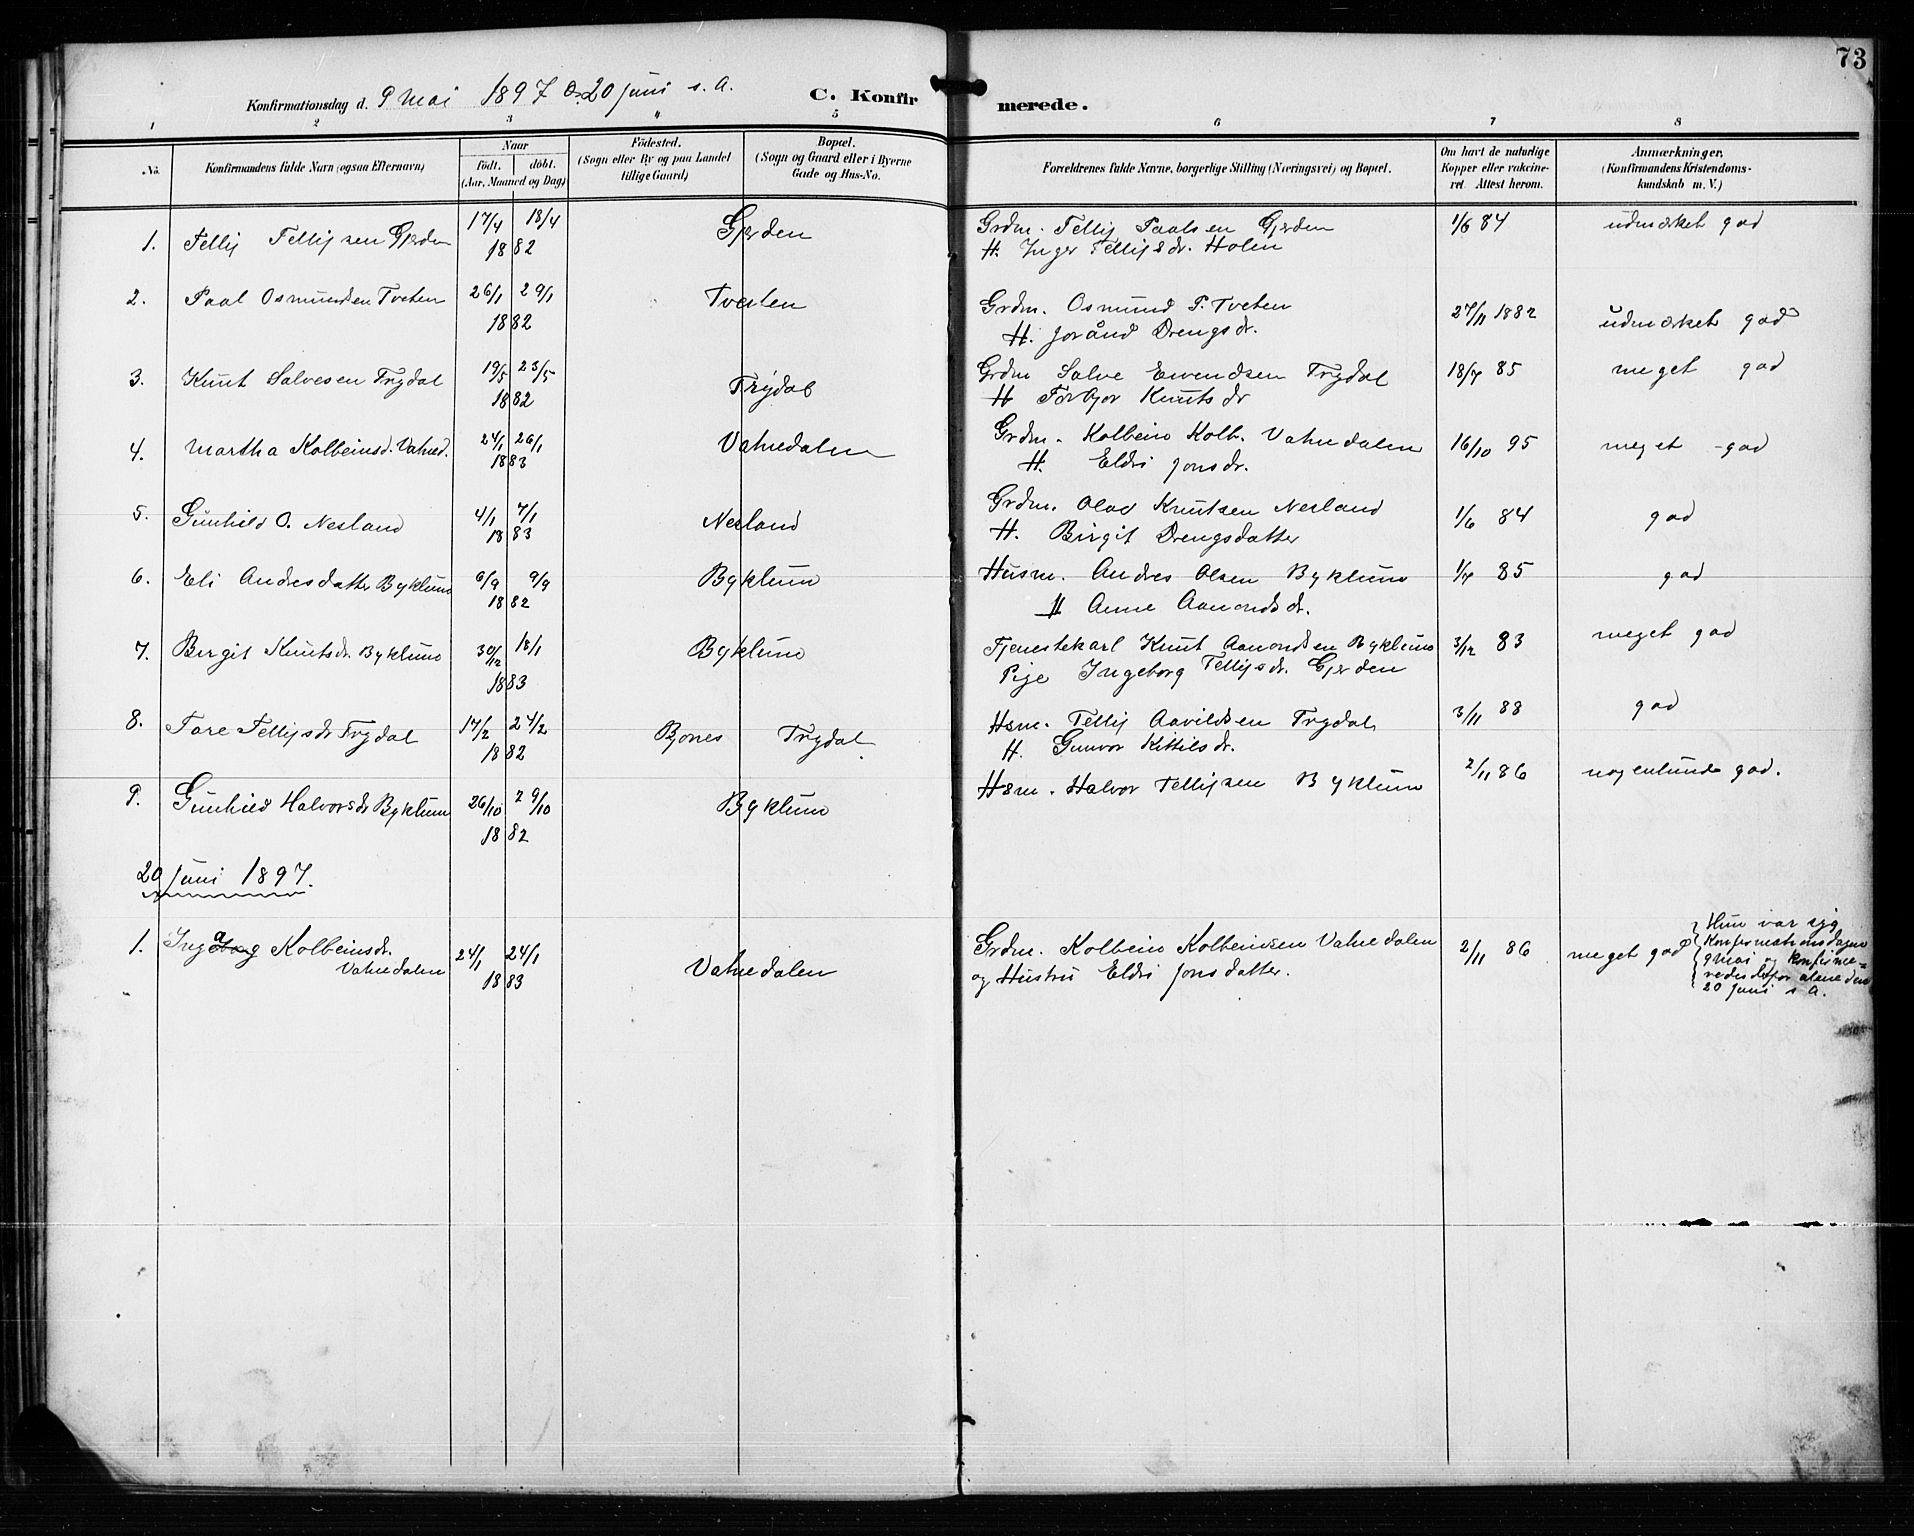 73
Konfirmationsdag d. 9 mai 1897 & 20 juni s. A. C. Konfirmerede.
1 2 3 4 5 6 7 8
No. Konfirmandens fulde Navn (ogsaa Efternavn) Naar født. døbt. (Aar, Maaned og Dag) Fødested. (Sogn eller By og paa Landet tillige Gaard) Bopæl. (Sogn og Gaard eller i Byerne Gade og Hus-No. Forældrenes fulde Navne, borgerlige Stilling (Næringsvei) og Bopæl. Om havt de naturlige Kopper eller vakcineret. Attest herom. Anmærkninger. (Konfirmandens Kristendomskundskab m. V.)
1. Tellij Tellijsen Gjerden 17/4 18/4 Gjerden Grdm. Tellij Paalsen Gjerden 1/6 84 udmærket god
1882 H. Inger Tellijsdr. Holen
2. Paal Osmundsen Tveten 26/1 29/1 Tveiten Grdm. Osmund P. Tveten 27/11 1882 udmærket god
1882 H. Jorånd Drengsdr.
3. Knut Salvesen Trydal 19/5 23/5 Trydal Grdm Salve Eivendsen Trydal 18/7 85 meget god
1882 H Torbjør Knutsdr
4. Martha Kolbeinsd. Vatned. 24/1 26/1 Vatnedalen Grdm. Kolbein Kolb. Vatnedalen 16/10 95 meget god
1883 H. Eldri Jonsdr.
5. Gunhild O. Nesland 4/1 7/1 Nesland Grdm. Olav Knutsen Nesland 1/6 84 god
1883 H. Birgit Drengsdatter
6. Eli Andresdatter Byklum 6/9 9/9 Byklum Husm. Andres Olsen Byklum 1/7 85 god
1882 H Anne Aamondsdr.
7. Birgit Knutsdr. Byklum 30/12 18/1 Byklum Tjenestekarl Knut Aamondsen Byklum 3/12 83 meget god
1883 Pige Ingeborg Tellijsdr. Gjerden
8. Tore Tellijsdr Trydal 17/2 24/2 Bjones Trydal Hsm. Tellij Aavildsen Trydal 3/11 88 god
1882 H. Gunvor Kittilsdr.
9. Gunhild Halvorsdr Byklum 26/10 29/10 Byklum Hsm. Halvor Tellijsen Byklum 2/11 86 nogenlunde god.
1882
20 juni 1897.
1. Inga Kolbeinsdr. Vatnedalen 24/1 24/1 Vatnedalen Grdm. Kolbein Kolbeinsen Vatnedalen 2/11 86 meget god
1883 og Hustru Eldri Jonsdatter.
Hun var syg
Konfirmationsdagen
9 mai og konfirme-
redes derfor alene den
20 juni s A.